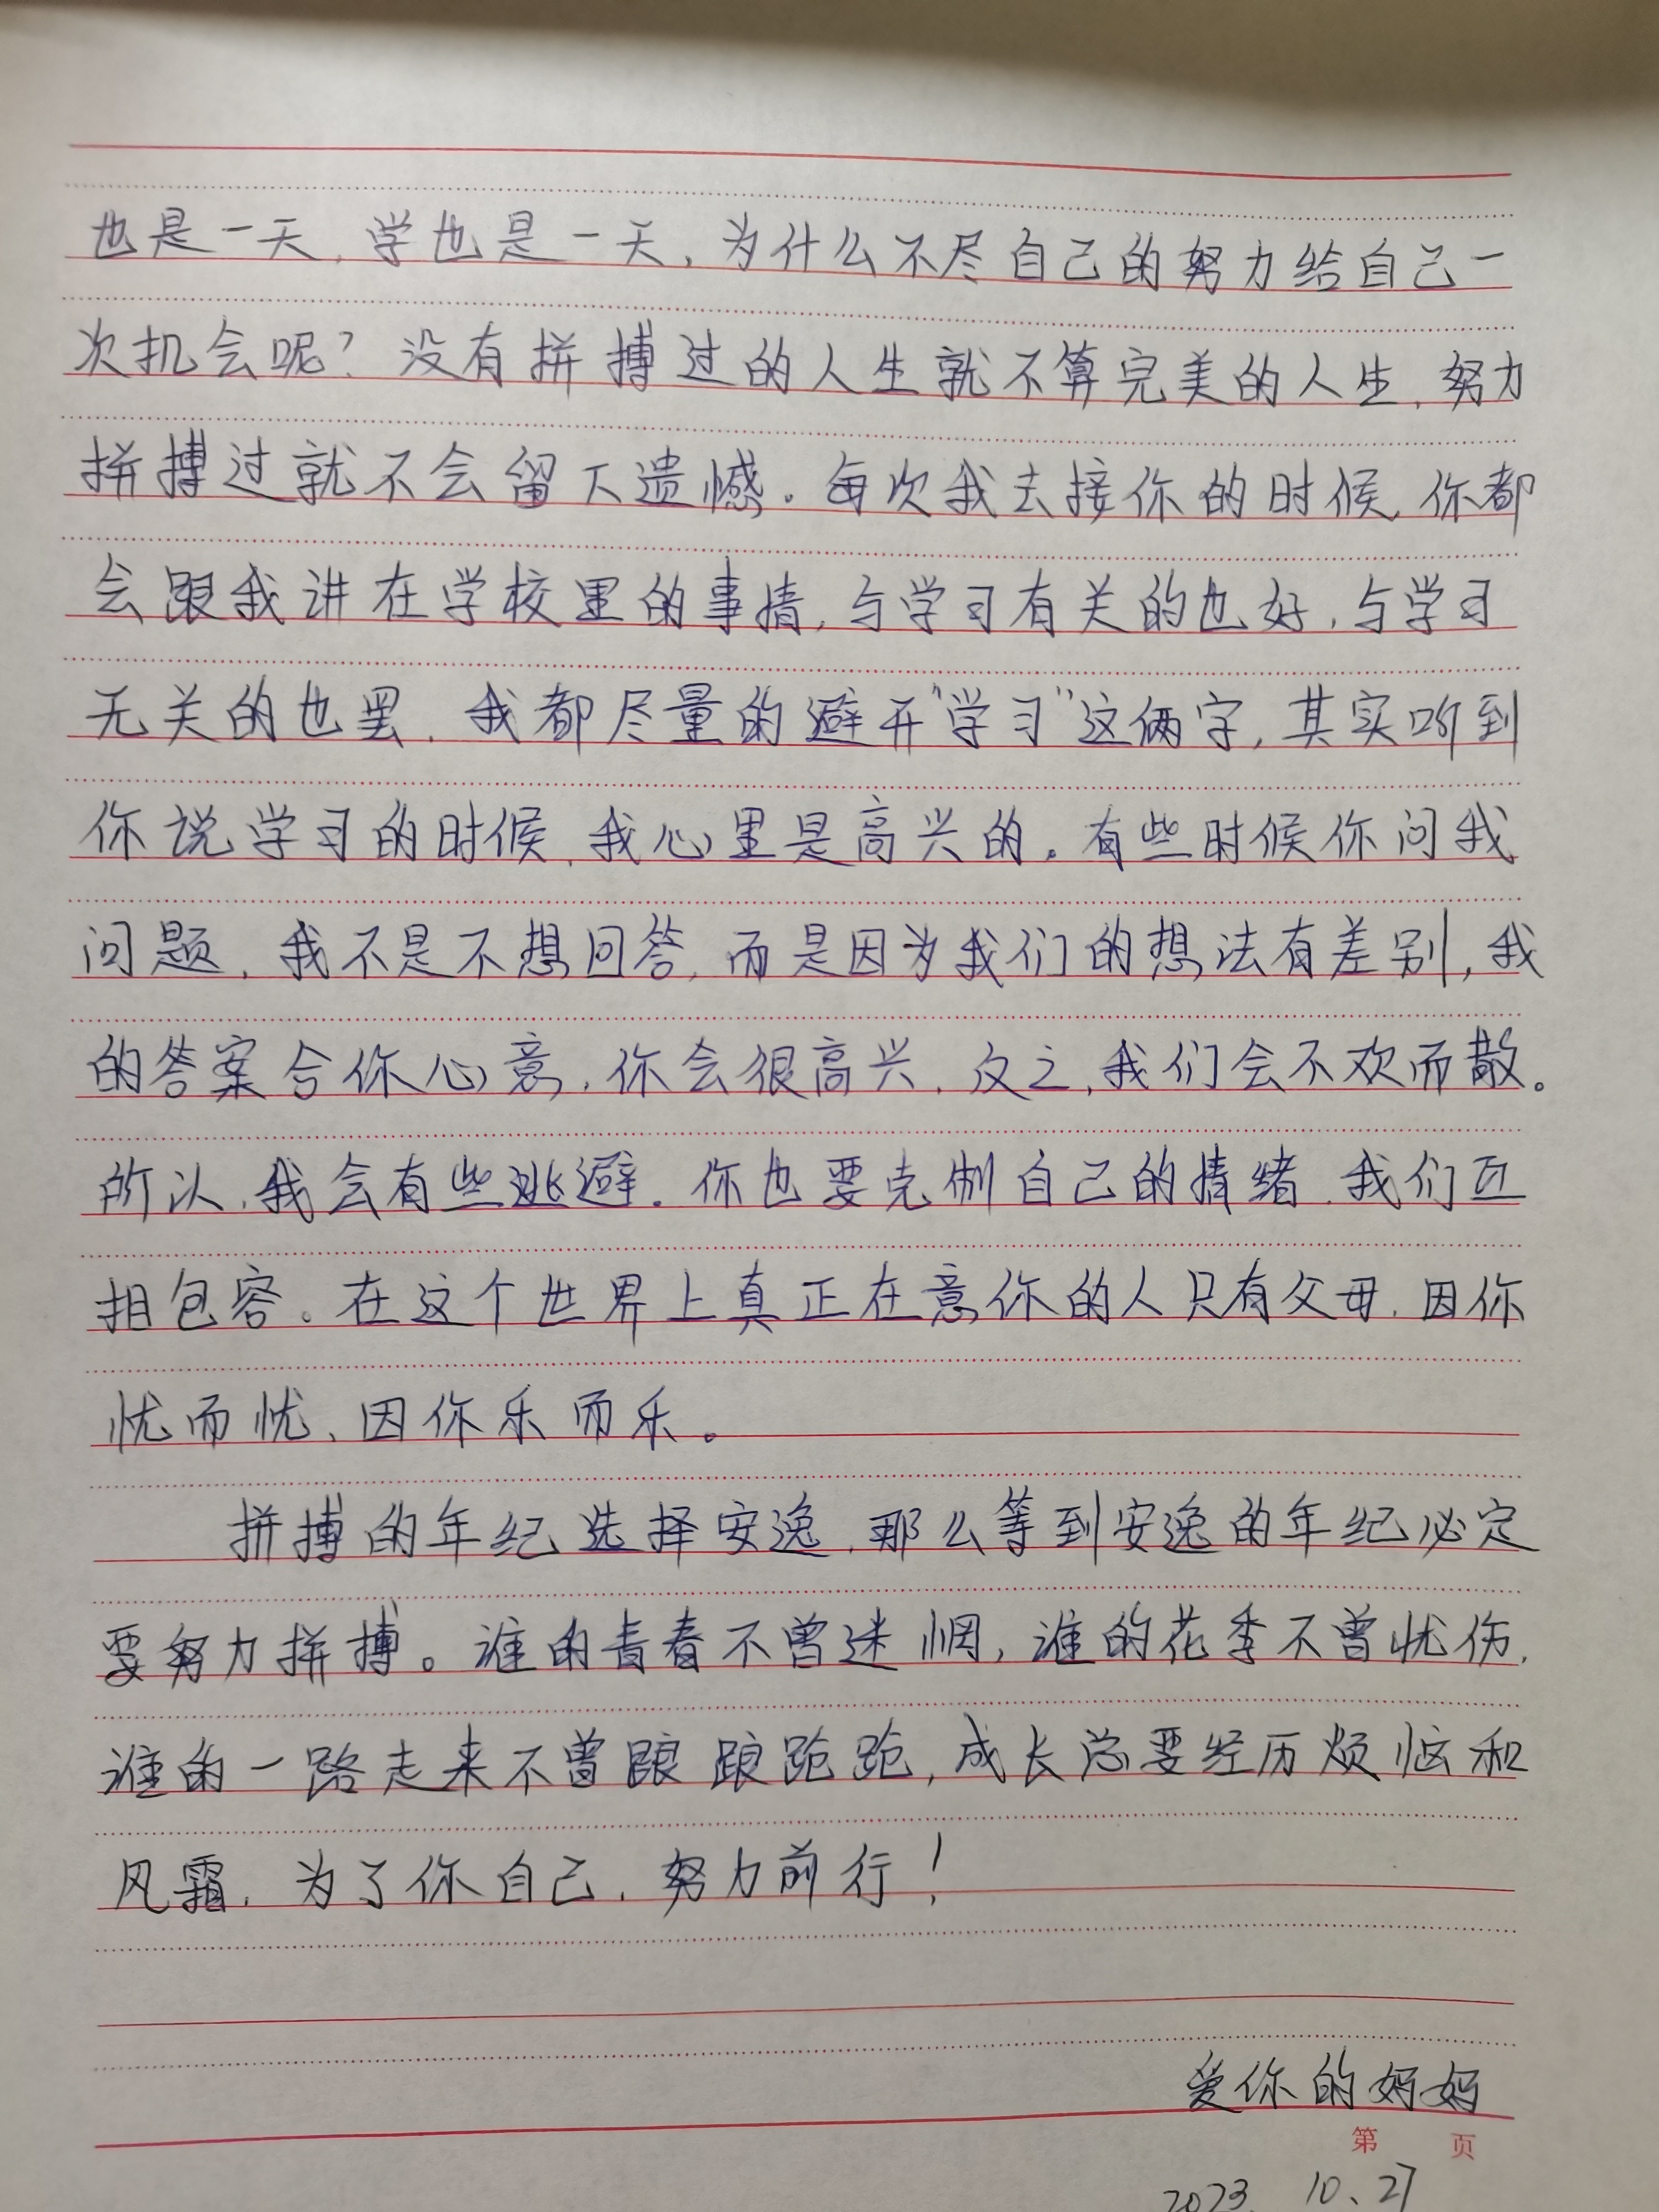 也是一天,学也是一天,为什么不尽自己的努力给自己一
次机会呢?没有拼搏过的人生就不算完美的人生,努力
拼搏过就不会留下遗憾。每次我去接你的时候,你都
会跟我讲在学校里的事情,与学习有关的也好,与学习
无关的也罢,我都尽量的避开“学习”这俩字,其实听到
你说学习的时候,我心里是高兴的。有些时候你问我
问题,我不是不想回答,而是因为我们的想法有差别,我
的答案合你心意,你会很高兴,反之,我们会不欢而散。
所以,我会有些逃避。你也要克制自己的情绪,我们互
相包容。在这个世界上真正在意你的人只有父母,因你
忧而忧、因你乐而乐。
拼搏的年纪选择安逸,那么等到安逸的年纪必定
要努力拼搏。谁的青春不曾迷惘,谁的花季不曾忧伤,
谁的一路走来不曾踉踉跄跄,成长总要经历烦恼和
风霜,为了你自己,努力前行!
爱你的妈妈
第 页
2023. 10、27